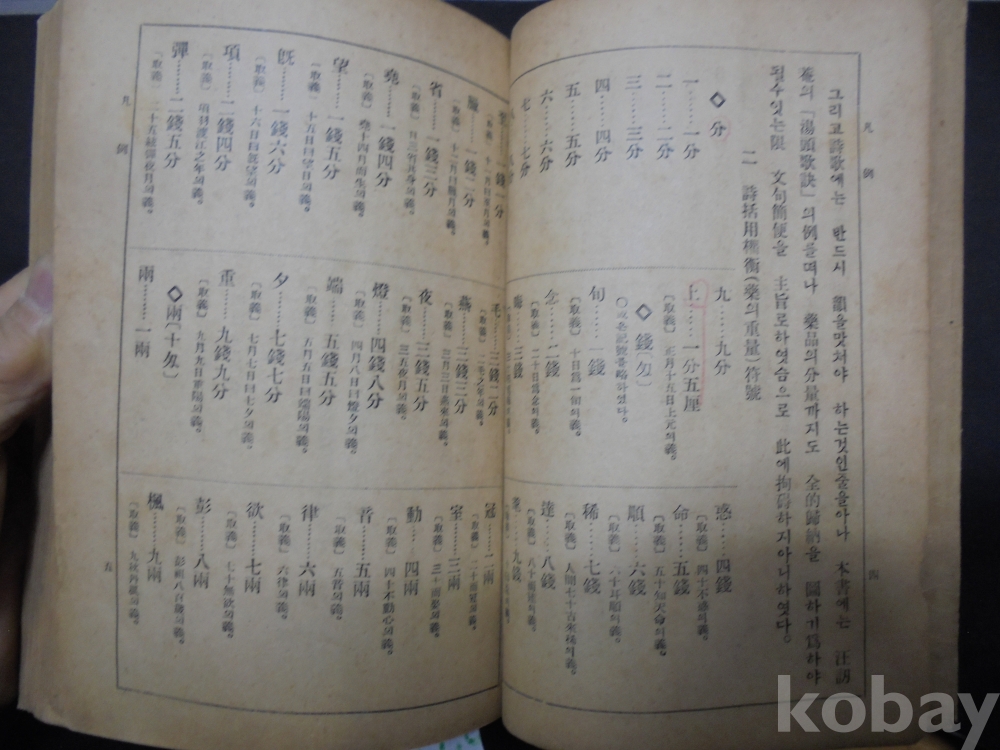 凡例
그리고詩歌에는 반드시 韻을맛처야 하는것인줄을아나 本書에는 汪訒
菴의「湯頭歌訣」의例를떠나 藥品의分量까지도 全的歸納을 圖하기爲하야
될수잇는限 文句簡便을 主旨로하엿슴으로 此에拘碍하지아니하엿다。
二 詩括用權衡(藥의重量)符號
◇分
一……一分
二……二分
三……三分
四……四分
五……五分
六……六分
七……七分
九……九分
上……一分五厘
〔取義〕正月十五日上元의義。
◇錢〔匁〕
旬……一錢
〔取義〕十日爲一旬의義。
念……二錢
〔取義〕二十日爲念의義。
晦……三錢
惑……四錢
〔取義〕四十不惑의義。
命……五錢
〔取義〕五十知天命의義。
順……六錢
〔取義〕六十耳順의義。
稀……七錢
〔取義〕人間七十古來稀의義。
達……八錢
〔取義〕
九錢
四
臘……一錢二分
〔取義〕十二月曰臘月의義。
省……一錢三分
〔取義〕日三省吾身의義。
堯……一錢四分
〔取義〕
望……一錢五分
〔取義〕十五日曰望日의義。
旣……一錢六分
〔取義〕十六日曰旣望의義。
項……二錢四分
〔取義〕項羽渡江之年의義。
彈……二錢五分
〔取義〕二十五絃彈夜月의義。
毛……三錢二分
〔取義〕二毛之年의義。
燕……三錢三分
〔取義〕三月三日燕來의義。
夜……三錢五分
〔取義〕三五夜月의義。
燈……四錢八分
〔取義〕四月八日曰燈夕의義。
端……五錢五分
〔取義〕五月五日曰端陽의義。
夕……七錢七分
〔取義〕七月七日曰七夕의義。
重……九錢九分
〔取義〕九月九日重陽의義。
◇兩〔十匁〕
兩……一兩
冠……二兩
〔取義〕二十而冠의義。
室……三兩
〔取義〕三十而娶의義。
動……四兩
〔取義〕四十不動心의義。
音……五兩
〔取義〕五音의義。
律……六兩
〔取義〕六律의義。
欲……七兩
〔取義〕七十無欲의義。
彭……八兩
〔取義〕彭祖八百歲의義。
楓……九兩
〔取義〕
凡例
五
kobay